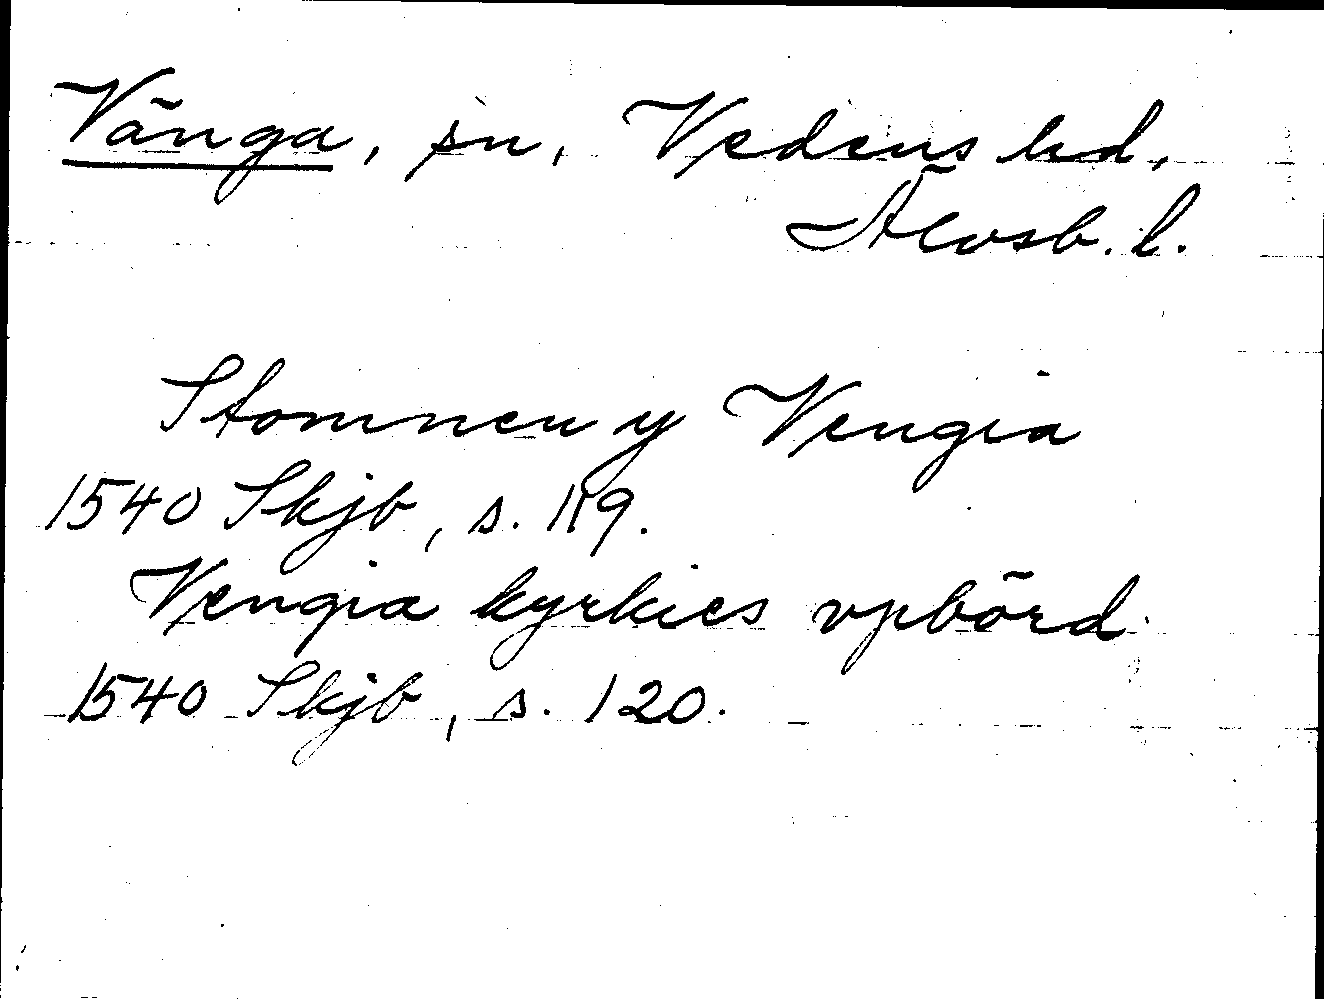 Vänga, sn, Vedens hd,
Älvsb. l.
Stomnen y Vengia
1540 Skjb, s. 119.
Vengia kyrkies vpbörd
1540 Skjb, s. 120.